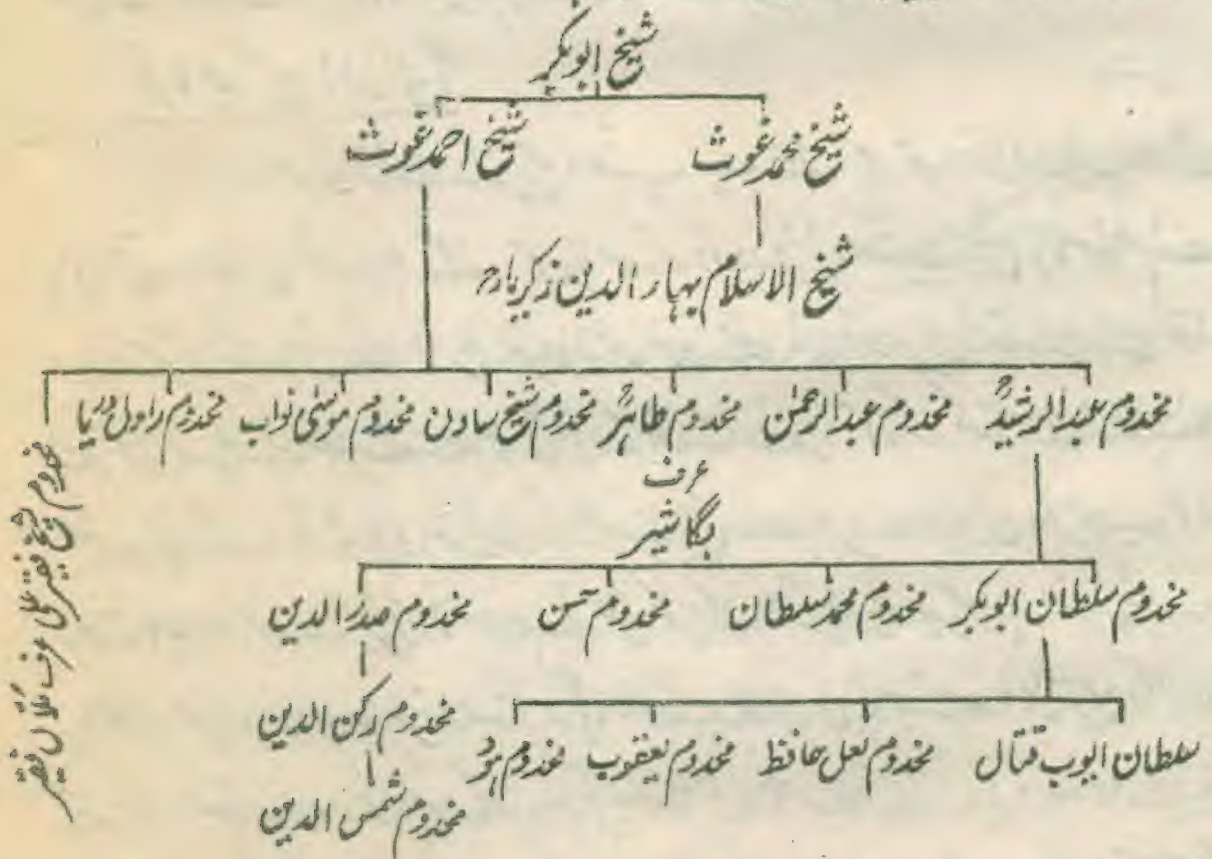 شیخ ابوبکر
شیخ محمد غوث
شیخ احمد غوث
شیخ الاسلام بہاء الدین زکریاؒ
مخدوم عبدالرشیدؒ
مخدوم عبدالرحمٰن
مخدوم طاہرؒ
مخدوم شیخ سادن
مخدوم موسیٰ نواب
مخدوم راول دریا
مخدوم شیخ فقیر علی عرف ملاں فقیر
عرف
بگا شیر
مخدوم سلطان ابوبکر
مخدوم محمد سلطان
مخدوم حسن
مخدوم صدر الدین
مخدوم رکن الدین
مخدوم شمس الدین
سلطان ایوب قتال
مخدوم لعل حافظ
مخدوم یعقوب
مخدوم ہود